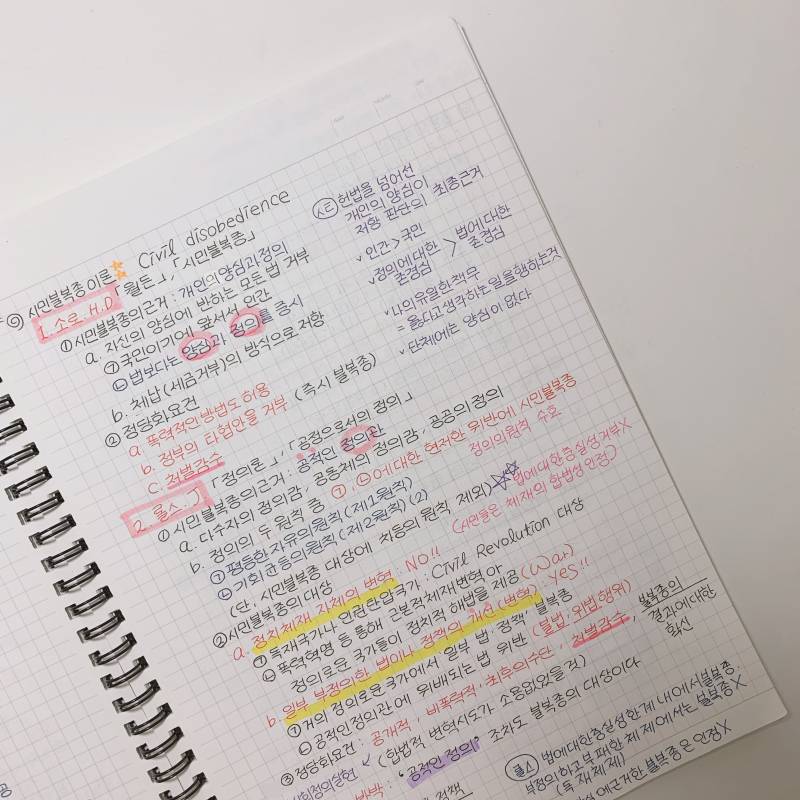 ⑨ 시민불복종 이론 Civil disobedience
1. 소로. H.D 「월든」, 「시민불복종」
① 시민불복종의 근거 : 개인의 양심과 정의
a. 자신의 양심에 반하는 모든 법 거부
㉠ 국민이기에 앞서서 인간
㉡ 법보다는 양심과 정의를 중시
b. 체납(세금거부)의 방식으로 저항
② 정당화요건 (즉시 불복종)
a. 폭력적인 방법도 허용
b. 정부의 타협안을 거부
c. 처벌감수
헌법을 넘어선
개인의 양심이
저항 판단의 최종근거
✓ 인간 > 국민
✓ 정의에 대한 존경심 > 법에 대한 존경심
✓ 나의 유일한 책무
= 옳다고 생각하는 일을 행하는 것
✓ 단체에는 양심이 없다
2. 롤스. J 「정의론」, 「공정으로서의 정의」
① 시민불복종의 근거 : 공적인 정의관
a. 다수자의 정의감, 공동체의 정의감, 공공의 정의
b. 정의의 두 원칙 중 ㉠, ㉡에 대한 현저한 위반에 시민불복종
정의의 원칙 수호
㉠ 평등한 자유의 원칙 (제1원칙)
㉡ 기회균등의 원칙 (제2원칙)(2)
(단, 시민불복종 대상에 차등의 원칙 제외)
법에 대한 충실성 거부 X
(시민들은 체제의 합법성 인정)
② 시민불복종의 대상
a. 정치체제 자체의 변혁 : NO!!
㉠ 독재국가나 인권탄압국가 : Civil Revolution 대상
㉡ 폭력혁명 등 통해 근본적 체제변혁 아
정의로운 국가들이 정치적 해법을 제공 (War)
b. 일부 부정의한 법이나 정책의 개혁(변혁) : yes!!
㉠ 거의 정의로운 국가에서 일부 법·정책 불복종
㉡ 공적인 정의관에 위배되는 법 위반 (불법·위법·행위)
③ 정당화요건 : 공개적, 비폭력적, 최후의 수단, 처벌감수, 불복종의 결과에 대한 확신
(합법적 변혁시도가 소용없었을 것)
사회정의실현
"공적인 정의" 조차도 불복종의 대상이다
법에 대한 충실성 한계 내에서 불복종.
부정의하고 부패한 체제에서는 불복종 X
(독재체제)
에 근거한 불복종은 인정 X
정책